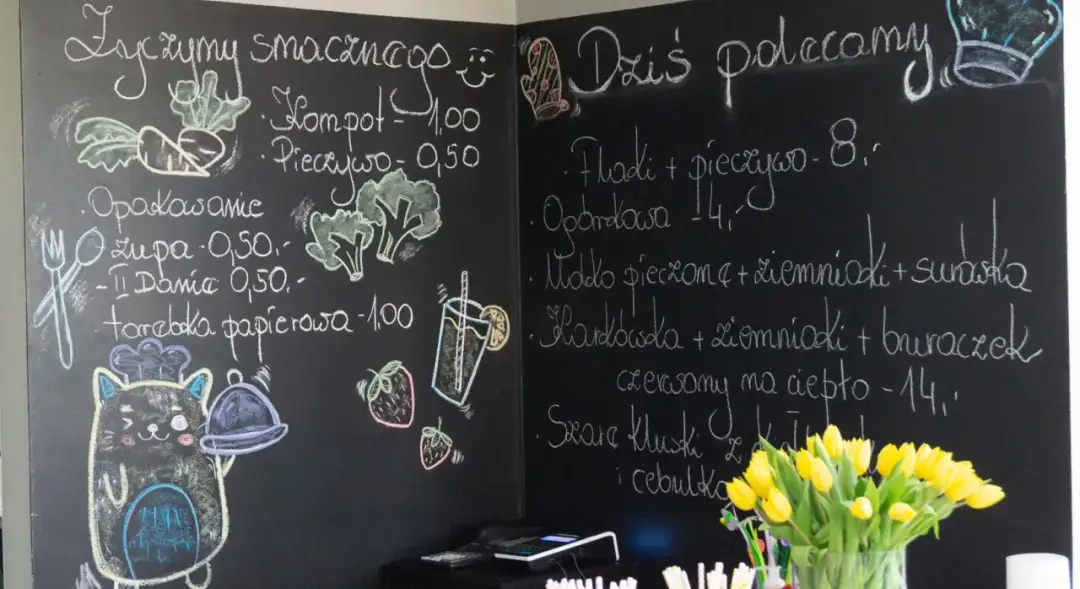 Życzymy smacznego
Kompot - 1,00
Pieczywo - 0,50
Opakowanie
zupa - 0,50.-
- II Danie 0,50.-
torebka papierowa - 1,00
Dziś polecamy
Flaki + pieczywo - 8.-
Ogórkowa - 4.-
Udko pieczone + ziemniaki + surówka
Karkówka + ziemniaki + buraczek
czerwony na ciepło - 14.-
Szare kluski z
i cebulką